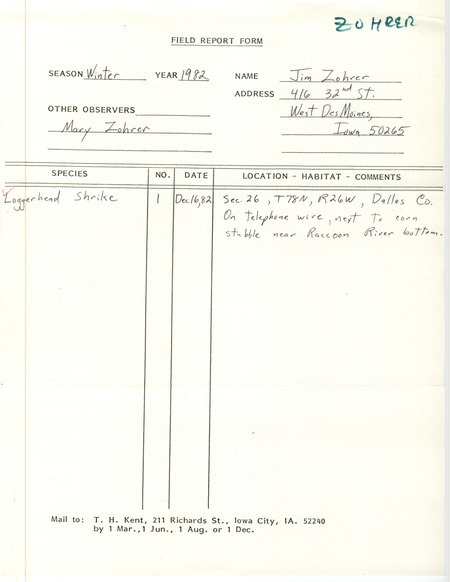 ZOHRER
FIELD REPORT FORM
SEASON Winter YEAR 1982 NAME Jim Zohrer
ADDRESS 416 32nd St.
OTHER OBSERVERS West Des Moines,
Mary Zohrer Iowa 50265
SPECIES NO. DATE LOCATION - HABITAT - COMMENTS
Loggerhead Shrike 1 Dec 16,82 Sec. 26, T78N, R26W, Dallas Co.
On telephone wire, next to corn
stubble near Raccoon River bottom.
Mail to: T. H. Kent, 211 Richards St., Iowa City, IA. 52240
by 1 Mar.,1 Jun., 1 Aug. or 1 Dec.